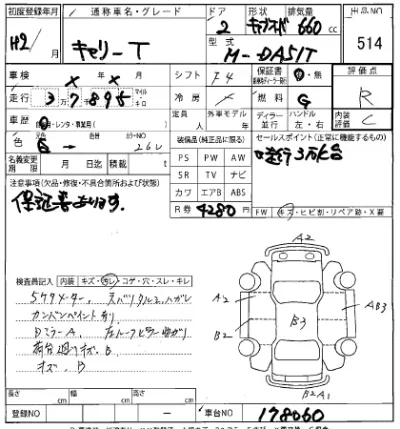 初度登録年月 通称車名・グレード ドア 形状 排気量 出品NO
H2/ 月 キャリーT 2 660 cc 514
型式 M-DA51T
車検 X 年 X 月 シフト F4 保証書 有・無 評価点
走行 3 7 8 9 5 マイル キロ 冷房 燃料 G R
車歴 自家用・レンタ・事業用 定員 人 外車モデル 年 ディーラー 並行 ハンドル 左・右 内装評価 C
色 元色 色替 カラーNO 26U 装備品(純正品に限る) セールスポイント(正常に機能するもの)
名義変更期限 月 日迄 積載 t PS PW AW 走行3万km台
注意事項(欠品・修復・不具合箇所および状態) SR TV ナビ
保証書あります。 カワ エアB ABS
R券 4280円 FW キズ・ヒビ割・リペア跡・X要
A2
検査員記入 内装 キズ・汚レ・コゲ・穴・スレ・キレ
A2 AB3
5ケタメーター、
カンバンペイント有り B2 B3
Dミラー A、
荷台廻りキズ、B
キズ、B B2A1
長さ cm 幅 cm 高さ cm
登録NO ー 車台NO 178060